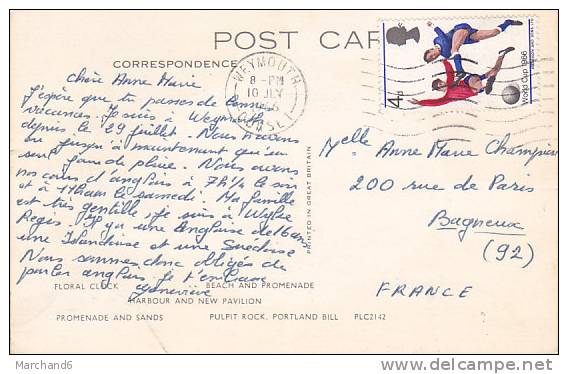 POST CAR
CORRESPONDENCE
WEYMOUTH
8-PM
10 JLY
DORSET
World Cup 1966
4d
Chère Anne Marie
J'espère que tu passes de bonnes
vacances. Je suis à Weymouth
depuis le 29 juillet. Nous n'avons
eu jusqu'à maintenant qu'un
seul jour de pluie. Nous avons
nos cours d'anglais à 7h1/4 le soir
et à le samedi. Ma famille
est très gentille, je suis à Wyke
Regis. Il y a une Anglaise de 16 ans
une Irlandaise et une Suédoise
Nous sommes donc obligés de
parler anglais. Je t'embrasse
Geneviève
Melle Anne Marie Champion
200 rue de Paris
Bagneux
(92)
FRANCE
PRINTED IN GREAT BRITAIN
FLORAL CLOCK BEACH AND PROMENADE
HARBOUR AND NEW PAVILION
PROMENADE AND SANDS PULPIT ROCK, PORTLAND BILL PLC2142
Marchand6
delcampe.net